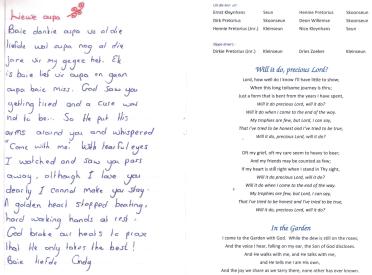 Liewe oupa
Baie dankie oupa vir al die
liefde wat oupa nog al die
jare vir my gegee het. Ek
is baie lief vir oupa en gaan
oupa baie mis. God saw you
getting tired and a cure was
not to be... So He put His
arms around you and whispered
"Come with me". With tearful eyes
I watched and saw you pass
away, although I love you
dearly I cannot make you stay.
A golden heart stopped beating,
hard working hands at rest.
God broke our hearts to prove
that He only takes the best!
Baie liefde Cindy
Ernst Kleynhans Seun Hennie Pretorius Skoonseun
Dirk Pretorius Skoonseun Deon Willemse Skoonseun
Hennie Pretorius (Jnr.) Kleinseun Nico Kleynhans Seun
Dirkie Pretorius (Jnr.) Kleinseun Dries Zaeker Kleinseun
Will it do, precious Lord?
Lord, how well do I know I'll have little to show,
When this long toilsome journey is thru;
Just a form that is bent from the years I have spent,
Will it do precious Lord, will it do?
Will it do when I come to the end of the way.
My trophies are few, but Lord, I can say,
That I've tried to be honest and I've tried to be true,
Will it do, precious Lord, will it do?
Oh my grief, oh my care seem to heavy to bear;
And my friends may be counted as few;
If my heart is still right when I stand in Thy sight,
Will it do, precious Lord, will it do?
Will it do when I come to the end of the way.
My trophies are few, but Lord, I can say,
That I've tried to be honest and I've tried to be true,
Will it do, precious Lord, will it do?
In the Garden
I come to the Garden with God. While the dew is still on the roses,
And the voice I hear, falling on my ear, the Son of God discloses.
And He walks with me, and He talks with me,
and He tells me I am His own,
And the joy we share as we tarry there, none other has ever known.